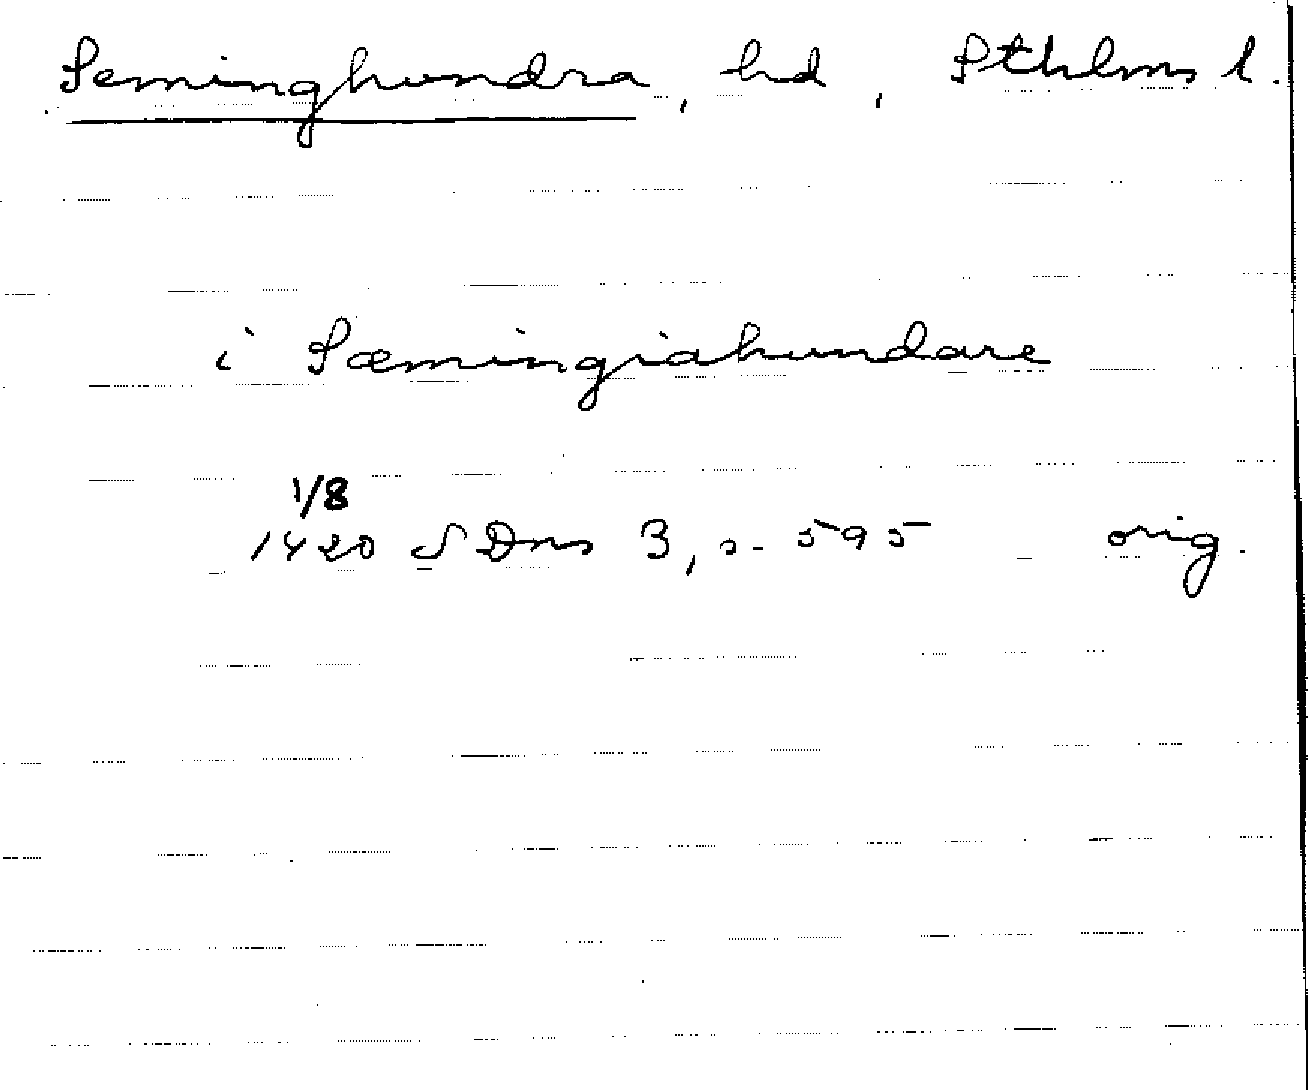 Seminghundra, hd, Sthlms l.
i Sæmingiahundare
1/8
1420 SDns 3, s. 595 orig.